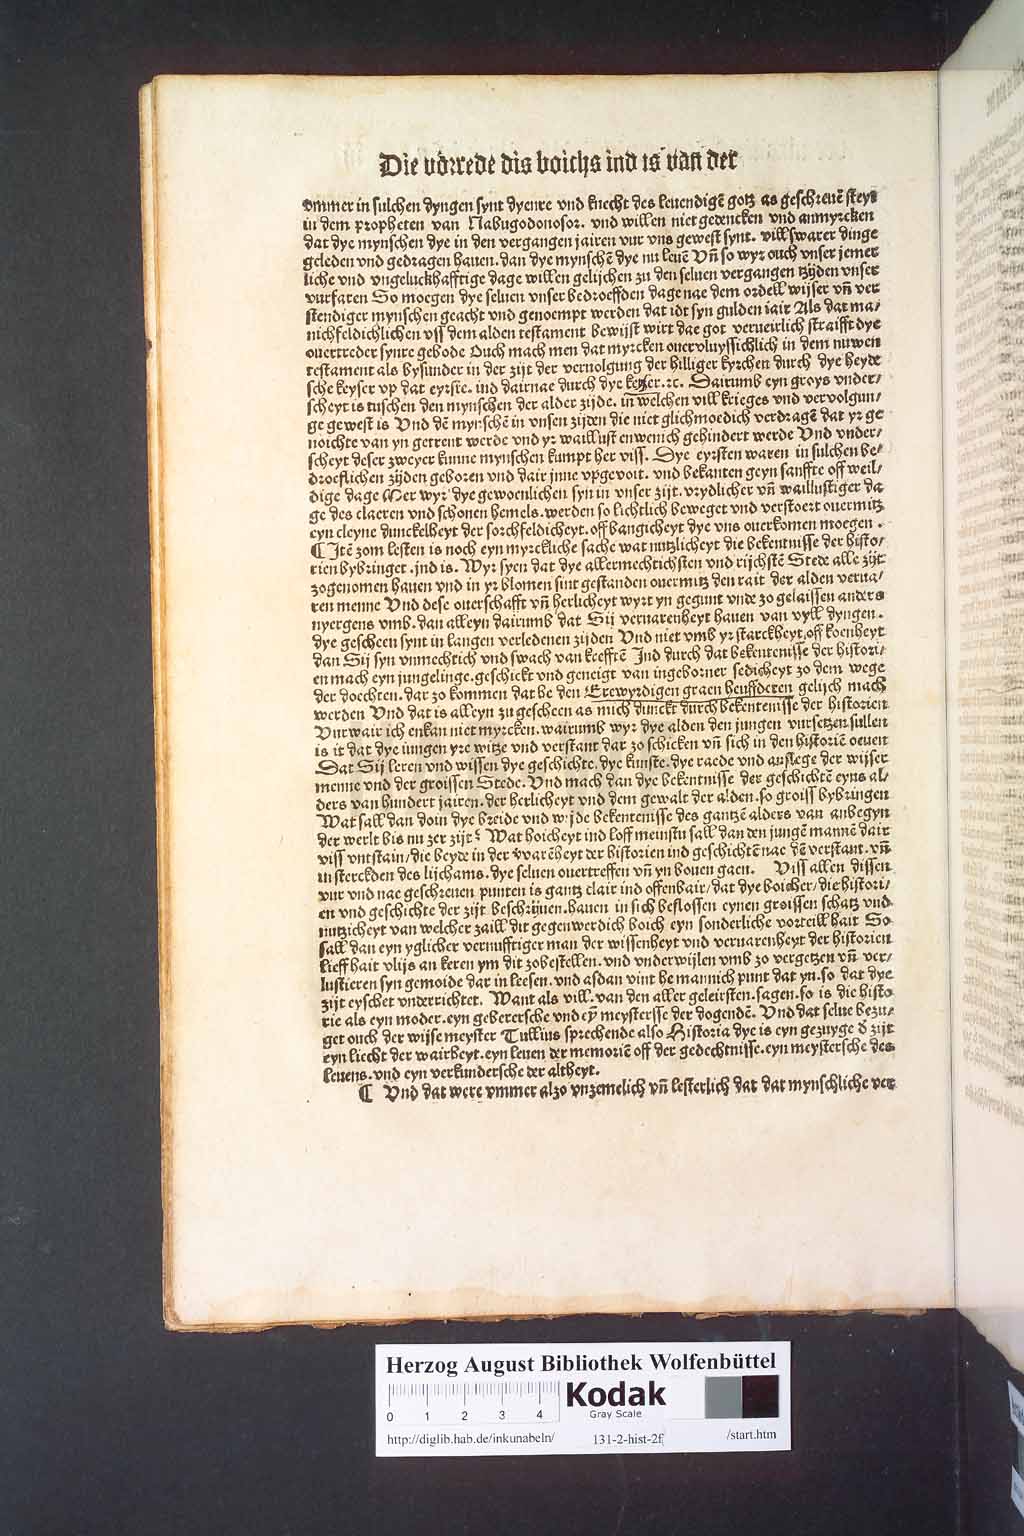 Die vorrede dis boichs ind is van der
vmmer in sulchen dyngen synt dyenre vnd knecht des leuendigē gotz as geschreuē steyt
in dem propheten van Nabugodonosor. vnd willen niet gedencken vnd anmyrcken
dat dye mynschen dye in den vergangen jairen vur vns gewest synt. vill swarer dinge
geleden vnd gedragen hauen. dan dye mynschē dye nu leuē Vñ so wyr ouch vnser jemer
liche vnd vngeluckhafftige dage willen gelijchen zu den seluen vergangen tzijden vnser
vurfaren So moegen dye seluen vnser bedroeffden dage nae dem ordell wijser vñ ver
stendiger mynschen geacht vnd genoempt werden dat idt syn gulden iair Als dat ma/
nichfeldichlichen vss dem alden testament bewijst wirt dae got verueirlich straifft dye
ouertreder synre gebode Ouch mach men dat myrcken ouervluyssichlich in dem nuwen
testament als bysunder in der zijt der veruolgung der hilliger kyrchen durch dye heyde
sche keyser vp dat eyrste. ind dairnae durch dye ketzer.⁊c. Dairumb eyn groys vnder/
scheyt is tuschen den mynschen der alder zijde. in welchen vill krieges vnd vervolgun/
ge gewest is Vnd dē mynschē in vnsen zijden die niet glichmoedich verdragē dat yr ge
noichte van yn getrent werde vnd yr waillust enwenich gehindert werde Vnd vnder/
scheyt deser zweyer kunne mynschen kumpt her viss. Dye eyrsten waren in sulchen be/
droeflichen zijden geboren vnd dair jnne vpgevoit. vnd bekanten geyn sanffte off weil/
dige dage Mer wyr dye gewoenlichen syn in vnser zijt. vrydlicher vñ waillustiger da
ge des claeren vnd schonen hemels. werden so lichtlich beweget vnd verstoert ouermitz
eyn cleyne dunckelheyt der sorchfeldicheyt. off bangicheyt dye vns ouerkomen moegen.
¶ Itē zom lesten is noch eyn myrckliche sache wat nutzlicheyt die bekentnisse der histo/
rien bybringet. jnd is. Wyr syen dat dye allermechtichsten vnd rijchstē Stede alle zijt
zogenomen hauen vnd in yr blomen sint gestanden ouermitz den rait der alden verua/
ren menne Vnd dese ouerschafft vñ herlicheyt wyrt yn gegunt vnde zo gelaissen anders
nyergens vmb. dan alleyn dairumb dat Sij veruarenheyt hauen van vyll dyngen.
dye gescheen synt in langen verledenen zijden Vnd niet vmb yr starckheyt, off koenheyt
dan Sij syn vnmechtich vnd swach van kreffrē Ind durch dat bekentenisse der histori/
en mach eyn jungelinge. geschickt vnd geneigt van ingeborner sedicheyt zo dem wege
der doechten. dar zo kommen dat he den Erewyrdigen graen heuffderen gelijch mach
werden Vnd dat is alleyn zu gescheen as mich dunckt durch bekentenisse der historien
Vurwair ich enkan niet myrcken. wairumb wyr dye alden den jungen vursetzen sullen
is it dat dye iungen yre witze vnd verstant dar zo schicken vñ sich in den historiē oeuen
Dat Sij leren vnd wissen dye geschichte. dye kunste. dye raede vnd anslege der wijser
menne vnd der groissen Stede. Vnd mach dan dye bekentnisse der geschichtē eyns al/
ders van hundert jairen. der herlicheyt vnd dem gewalt der alden. so groiss bybringen
Wat sall dan doin dye breide vnd wijde bekentenisse des gantzē alders van anbegyn
der werlt bis nu zer zijt? Wat hoicheyt ind loff meinstu sall dan den jungē mannē dair
viss vntstain/ die beyde in der ervarēheyt der historien ind geschichtē nae dē verstant. vñ
in sterckden des lijchams. dye seluen ouertreffen vñ yn bouen gaen. Viss allen dissen
vur vnd nae geschreuen punten is gantz clair ind offenbair/ dat dye boicher/ die histori/
en vnd geschichte der zijt beschrijuen. hauen in sich beslossen eynen groissen schatz vnd
nutzicheyt van welcher zaill dit gegenwerdich boich eyn sonderliche vorteill hait So
sall dan eyn yglicher vernufftiger man der wissenheyt vnd veruarenheyt der historien
lieff hait vlijs an keren ym dit zobestellen. vnd vnderwijlen vmb zo vergetzen vñ ver/
lustieren syn gemoide dar in leesen. vnd asdan vint he mannich punt dat yn. so dat dye
zijt eyschet vnderrichtet. Want als vill. van den aller geleirsten. sagen. so is die histo
rie als eyn moder. eyn geberersche vnd eȳ meystersse der dogendē. Vnd dat selue bezu/
get ouch der wijse meyster Tullius sprechende also Historia dye is eyn gezuyge d̄ zijt
eyn liecht der wairheyt. eyn leuen der memoriē off der gedechtnisse. eyn meystersche des
leuens. vnd eyn verkundersche der altheyt.
¶ Vnd dat were vmmer alzo vnzemelich vñ lesterlich dat dat mynschliche ver
Herzog August Bibliothek Wolfenbüttel
0 1 2 3 4
Kodak
Gray Scale
http://diglib.hab.de/inkunabeln/ 131-2-hist-2f /start.htm